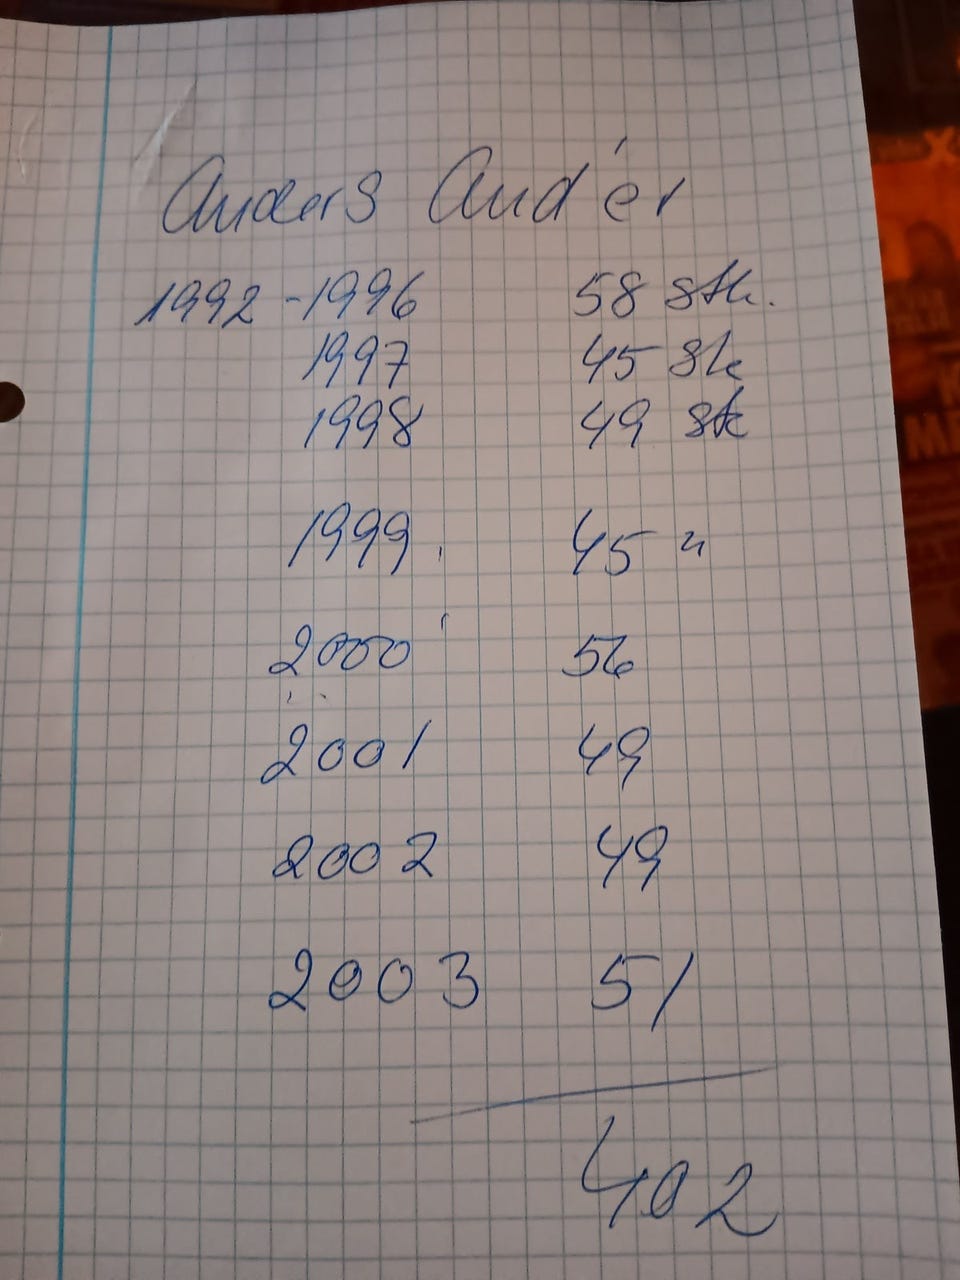 Anders And'er
1992 - 1996 58 stk.
1997 45 stk
1998 49 stk
1999. 45 "
2000 56
2001 49
2002 49
2003 51
402